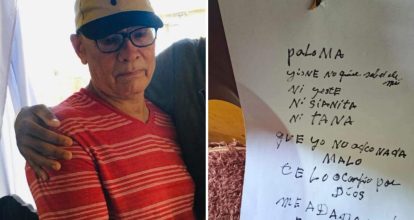 paloMA
yisNE No quiere saber de mi
Ni yoste
Ni GiANitA
Ni TANA
QUE yo No AGO NADA
MALO
TE LO
por
Dios
ME ADAMA